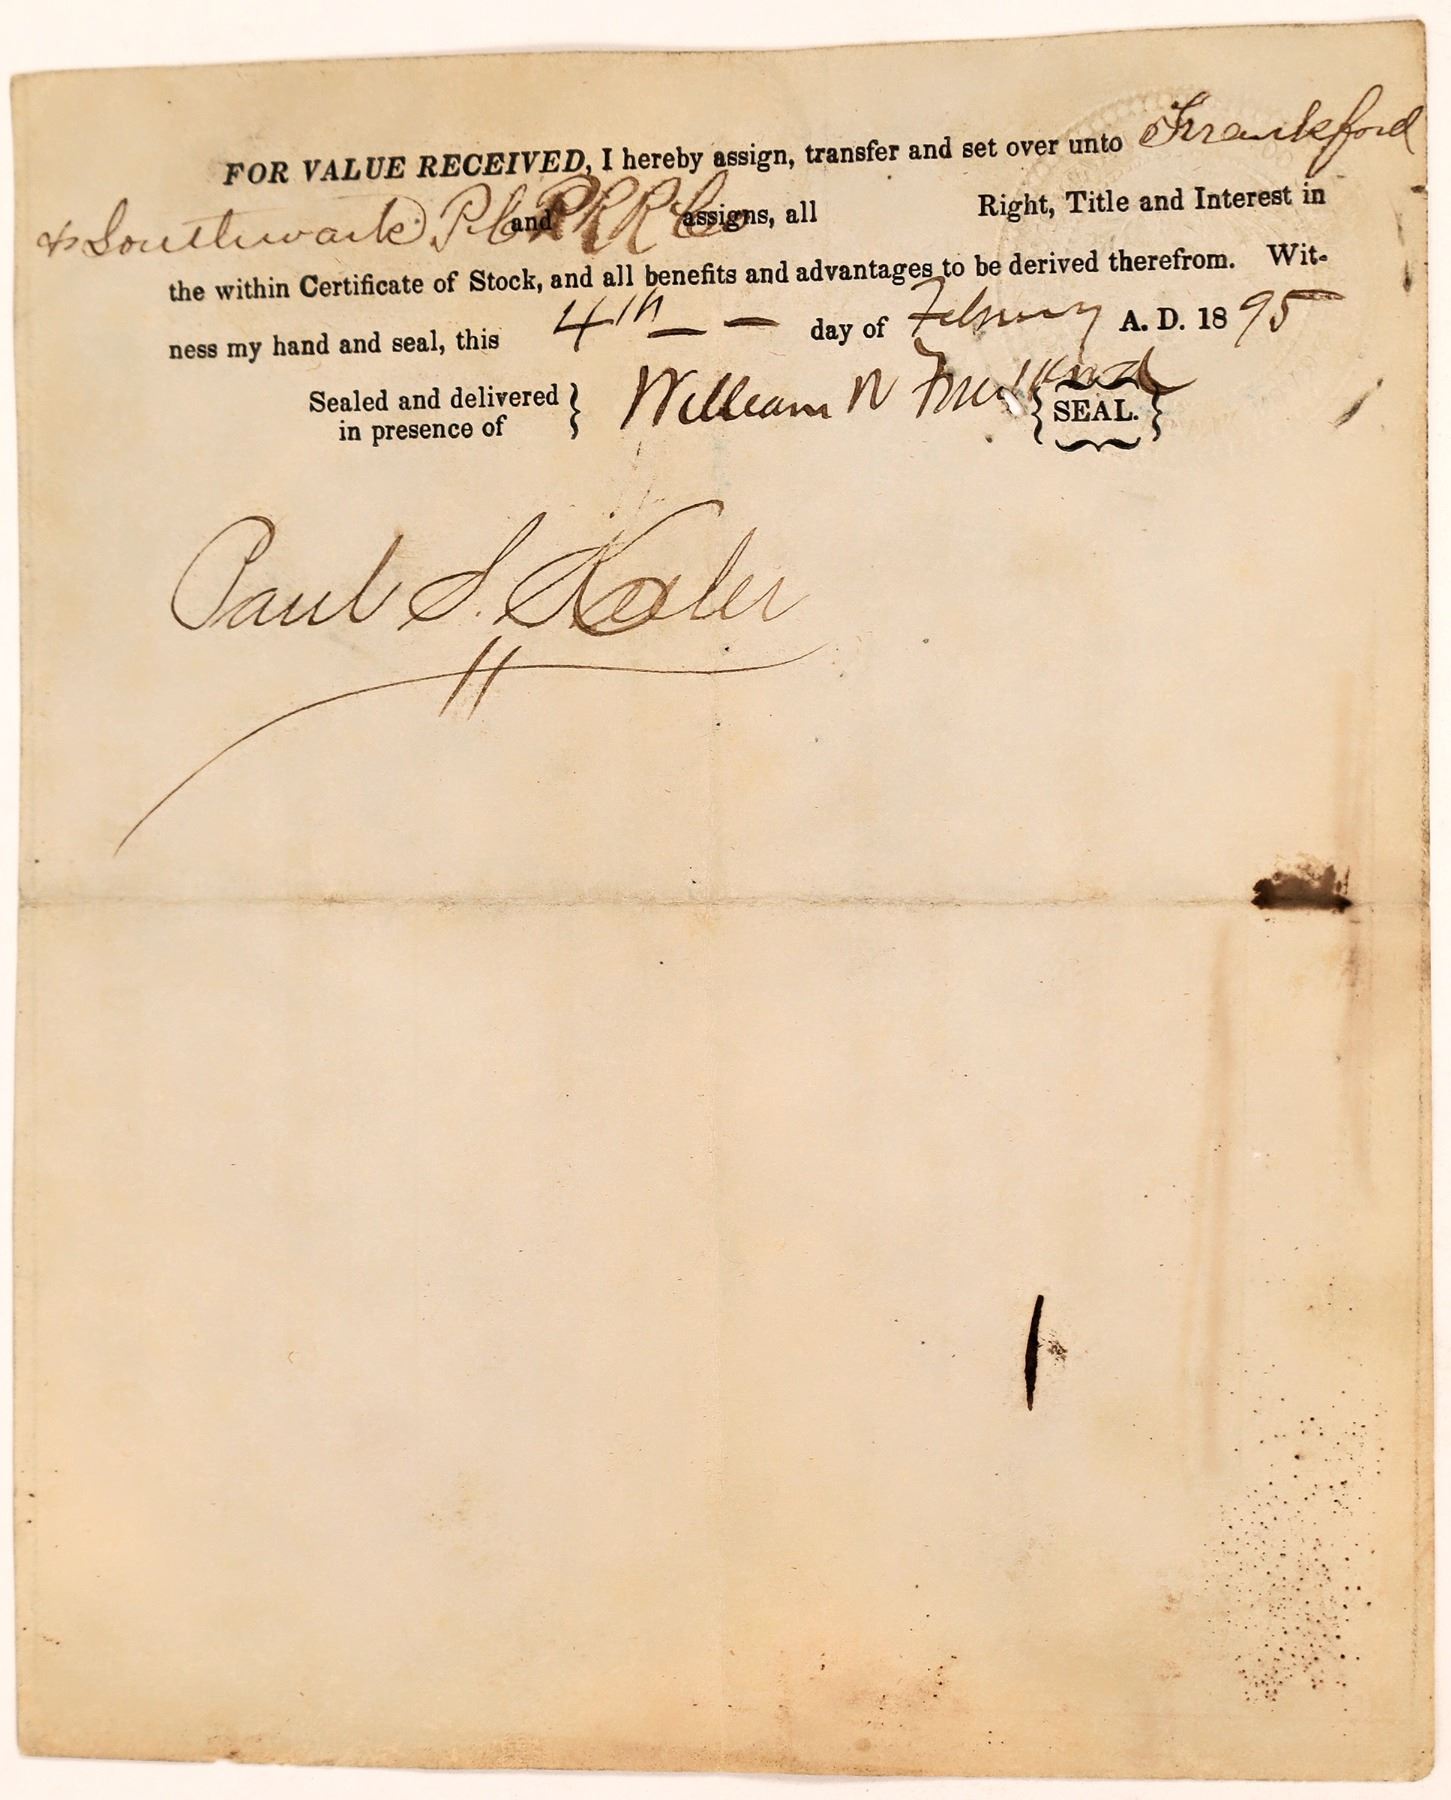 FOR VALUE RECEIVED, I hereby assign, transfer and set over unto Frankford
& Southwark P. C. P. R. R. Co and assigns, all Right, Title and Interest in
the within Certificate of Stock, and all benefits and advantages to be derived therefrom. Wit-
ness my hand and seal, this 4th day of February A. D. 1895
Sealed and delivered } William W {SEAL.}
in presence of
Paul S.